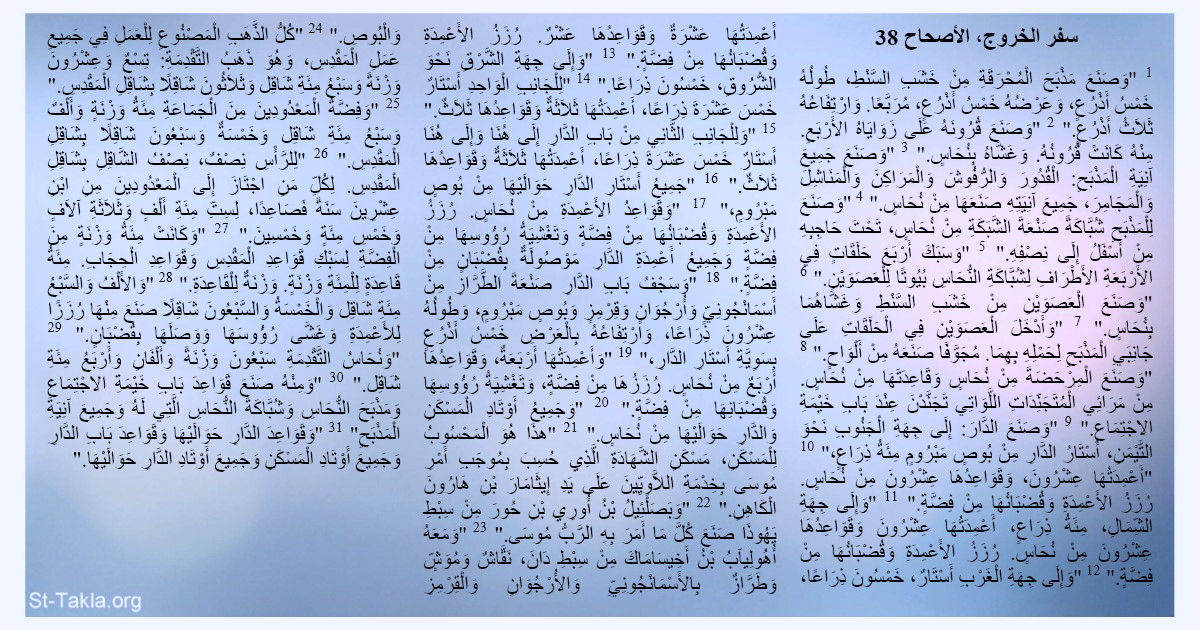 سفر الخروج، الأصحاح 38
1 "وَصَنَعَ مَذْبَحَ الْمُحْرَقَةِ مِنْ خَشَبِ السَّنْطِ، طُولُهُ
خَمْسُ أَذْرُعٍ، وَعَرْضُهُ خَمْسُ أَذْرُعٍ، مُرَبَّعًا. وَارْتِفَاعُهُ
ثَلاَثُ أَذْرُعٍ." 2 "وَصَنَعَ قُرُونَهُ عَلَى زَوَايَاهُ الأَرْبَعِ.
مِنْهُ كَانَتْ قُرُونُهُ. وَغَشَّاهُ بِنُحَاسٍ." 3 "وَصَنَعَ جَمِيعَ
آنِيَةِ الْمَذْبَحِ: الْقُدُورَ وَالرُّفُوشَ وَالْمَرَاكِنَ وَالْمَنَاشِلَ
وَالْمَجَامِرَ، جَمِيعَ آنِيَتِهِ صَنَعَهَا مِنْ نُحَاسٍ." 4 "وَصَنَعَ
لِلْمَذْبَحِ شُبَّاكَةً صَنْعَةَ الشَّبَكَةِ مِنْ نُحَاسٍ، تَحْتَ حَاجِبِهِ
مِنْ أَسْفَلُ إِلَى نِصْفِهِ." 5 "وَسَبَكَ أَرْبَعَ حَلَقَاتٍ فِي
الأَرْبَعَةِ الأَطْرَافِ لِشُبَّاكَةِ النُّحَاسِ بُيُوتًا لِلْعَصَوَيْنِ." 6
"وَصَنَعَ الْعَصَوَيْنِ مِنْ خَشَبِ السَّنْطِ وَغَشَّاهُمَا
بِنُحَاسٍ." 7 "وَأَدْخَلَ الْعَصَوَيْنِ فِي الْحَلَقَاتِ عَلَى
جَانِبَيِ الْمَذْبَحِ لِحَمْلِهِ بِهِمَا. مُجَوَّفًا صَنَعَهُ مِنْ أَلْوَاحٍ." 8
"وَصَنَعَ الْمِرْحَضَةَ مِنْ نُحَاسٍ وَقَاعِدَتَهَا مِنْ نُحَاسٍ.
مِنْ مَرَائِي الْمُتَجَنِّدَاتِ اللَّوَاتِي تَجَنَّدْنَ عِنْدَ بَابِ خَيْمَةِ
الاجْتِمَاعِ." 9 "وَصَنَعَ الدَّارَ: إِلَى جِهَةِ الْجَنُوبِ نَحْوَ
التَّيْمَنِ، أَسْتَارُ الدَّارِ مِنْ بُوصٍ مَبْرُومٍ مِئَةُ ذِرَاعٍ،" 10
"أَعْمِدَتُهَا عِشْرُونَ، وَقَوَاعِدُهَا عِشْرُونَ مِنْ نُحَاسٍ.
رُزَزُ الأَعْمِدَةِ وَقُضْبَانُهَا مِنْ فِضَّةٍ." 11 "وَإِلَى جِهَةِ
الشِّمَالِ، مِئَةُ ذِرَاعٍ، أَعْمِدَتُهَا عِشْرُونَ وَقَوَاعِدُهَا
عِشْرُونَ مِنْ نُحَاسٍ. رُزَزُ الأَعْمِدَةِ وَقُضْبَانُهَا مِنْ
فِضَّةٍ." 12 "وَإِلَى جِهَةِ الْغَرْبِ أَسْتَارٌ، خَمْسُونَ ذِرَاعًا،
أَعْمِدَتُهَا عَشْرَةٌ وَقَوَاعِدُهَا عَشْرٌ. رُزَزُ الأَعْمِدَةِ
وَقُضْبَانُهَا مِنْ فِضَّةٍ." 13 "وَإِلَى جِهَةِ الشَّرْقِ نَحْوَ
الشُّرُوقِ، خَمْسُونَ ذِرَاعًا." 14 "لِلْجَانِبِ الْوَاحِدِ أَسْتَارٌ
خَمْسَ عَشْرَةَ ذِرَاعًا، أَعْمِدَتُهَا ثَلاَثَةٌ وَقَوَاعِدُهَا ثَلاَثٌ."
15 "وَلِلْجَانِبِ الثَّانِي مِنْ بَابِ الدَّارِ إِلَى هُنَا وَإِلَى هُنَا
أَسْتَارٌ خَمْسَ عَشَرَةَ ذِرَاعًا، أَعْمِدَتُهَا ثَلاَثَةٌ وَقَوَاعِدُهَا
ثَلاَثٌ." 16 "جَمِيعُ أَسْتَارِ الدَّارِ حَوَالَيْهَا مِنْ بُوصٍ
مَبْرُومٍ،" 17 "وَقَوَاعِدُ الأَعْمِدَةِ مِنْ نُحَاسٍ. رُزَزُ
الأَعْمِدَةِ وَقُضْبَانُهَا مِنْ فِضَّةٍ وَتَغْشِيَةُ رُؤُوسِهَا مِنْ
فِضَّةٍ وَجَمِيعُ أَعْمِدَةِ الدَّارِ مَوْصُولَةٌ بِقُضْبَانٍ مِنْ
فِضَّةٍ." 18 "وَسَجْفُ بَابِ الدَّارِ صَنْعَةُ الطَّرَّازِ مِنْ
أَسْمَانْجُونِيٍّ وَأُرْجُوَانٍ وَقِرْمِزٍ وَبُوصٍ مَبْرُومٍ، وَطُولُهُ
عِشْرُونَ ذِرَاعًا، وَارْتِفَاعُهُ بِالْعَرْضِ خَمْسُ أَذْرُعٍ
بِسَوِيَّةِ أَسْتَارِ الدَّارِ،" 19 "وَأَعْمِدَتُهَا أَرْبَعَةٌ، وَقَوَاعِدُهَا
أَرْبَعٌ مِنْ نُحَاسٍ. رُزَزُهَا مِنْ فِضَّةٍ، وَتَغْشِيَةُ رُؤُوسِهَا
وَقُضْبَانِهَا مِنْ فِضَّةٍ." 20 "وَجَمِيعُ أَوْتَادِ الْمَسْكَنِ
وَالدَّارِ حَوَالَيْهَا مِنْ نُحَاسٍ." 21 "هذَا هُوَ الْمَحْسُوبُ
لِلْمَسْكَنِ، مَسْكَنِ الشَّهَادَةِ الَّذِي حُسِبَ بِمُوجَبِ أَمْرِ
مُوسَى بِخِدْمَةِ اللاَّوِيِّينَ عَلَى يَدِ إِيثَامَارَ بْنِ هَارُونَ
الْكَاهِنِ." 22 "وَبَصَلْئِيلُ بْنُ أُورِي بْنِ حُورَ مِنْ سِبْطِ
يَهُوذَا صَنَعَ كُلَّ مَا أَمَرَ بِهِ الرَّبُّ مُوسَى." 23 "وَمَعَهُ
أُهُولِيآبُ بْنُ أَخِيسَامَاكَ مِنْ سِبْطِ دَانَ، نَقَّاشٌ وَمُوَشٍّ
وَطَرَّازٌ بِالأَسْمَانْجُونِيِّ وَالأُرْجُوَانِ وَالْقِرْمِزِ
وَالْبُوصِ." 24 "كُلُّ الذَّهَبِ الْمَصْنُوعِ لِلْعَمَلِ فِي جَمِيعِ
عَمَلِ الْمَقْدِسِ، وَهُوَ ذَهَبُ التَّقْدِمَةِ: تِسْعٌ وَعِشْرُونَ
وَزْنَةً وَسَبْعُ مِئَةِ شَاقِل وَثَلاَثُونَ شَاقِلًا بِشَاقِلِ الْمَقْدِسِ."
25 "وَفِضَّةُ الْمَعْدُودِينَ مِنَ الْجَمَاعَةِ مِئَةُ وَزْنَةٍ وَأَلْفٌ
وَسَبْعُ مِئَةِ شَاقِل وَخَمْسَةٌ وَسَبْعُونَ شَاقِلًا بِشَاقِلِ
الْمَقْدِسِ." 26 "لِلرَّأْسِ نِصْفٌ، نِصْفُ الشَّاقِلِ بِشَاقِلِ
الْمَقْدِسِ. لِكُلِّ مَنِ اجْتَازَ إِلَى الْمَعْدُودِينَ مِنِ ابْنِ
عِشْرِينَ سَنَةً فَصَاعِدًا، لِسِتِّ مِئَةِ أَلْفٍ وَثَلاَثَةِ آلاَفٍ
وَخَمْسِ مِئَةٍ وَخَمْسِينَ." 27 "وَكَانَتْ مِئَةُ وَزْنَةٍ مِنَ
الْفِضَّةِ لِسَبْكِ قَوَاعِدِ الْمَقْدِسِ وَقَوَاعِدِ الْحِجَابِ. مِئَةُ
قَاعِدَةٍ لِلْمِئَةِ وَزْنَةٍ. وَزْنَةٌ لِلْقَاعِدَةِ." 28 "وَالأَلْفُ وَالسَّبْعُ
مِئَةِ شَاقِل وَالْخَمْسَةُ وَالسَّبْعُونَ شَاقِلًا صَنَعَ مِنْهَا رُزَزًا
لِلأَعْمِدَةِ وَغَشَّى رُؤُوسَهَا وَوَصَلَهَا بِقُضْبَانٍ." 29
"وَنُحَاسُ التَّقْدِمَةِ سَبْعُونَ وَزْنَةً وَأَلْفَانِ وَأَرْبَعُ مِئَةِ
شَاقِل." 30 "وَمِنْهُ صَنَعَ قَوَاعِدَ بَابِ خَيْمَةِ الاجْتِمَاعِ
وَمَذْبَحَ النُّحَاسِ وَشُبَّاكَةَ النُّحَاسِ الَّتِي لَهُ وَجَمِيعَ آنِيَةِ
الْمَذْبَحِ" 31 "وَقَوَاعِدَ الدَّارِ حَوَالَيْهَا وَقَوَاعِدَ بَابِ الدَّارِ
وَجَمِيعَ أَوْتَادِ الْمَسْكَنِ وَجَمِيعَ أَوْتَادِ الدَّارِ حَوَالَيْهَا."
St-Takla.org